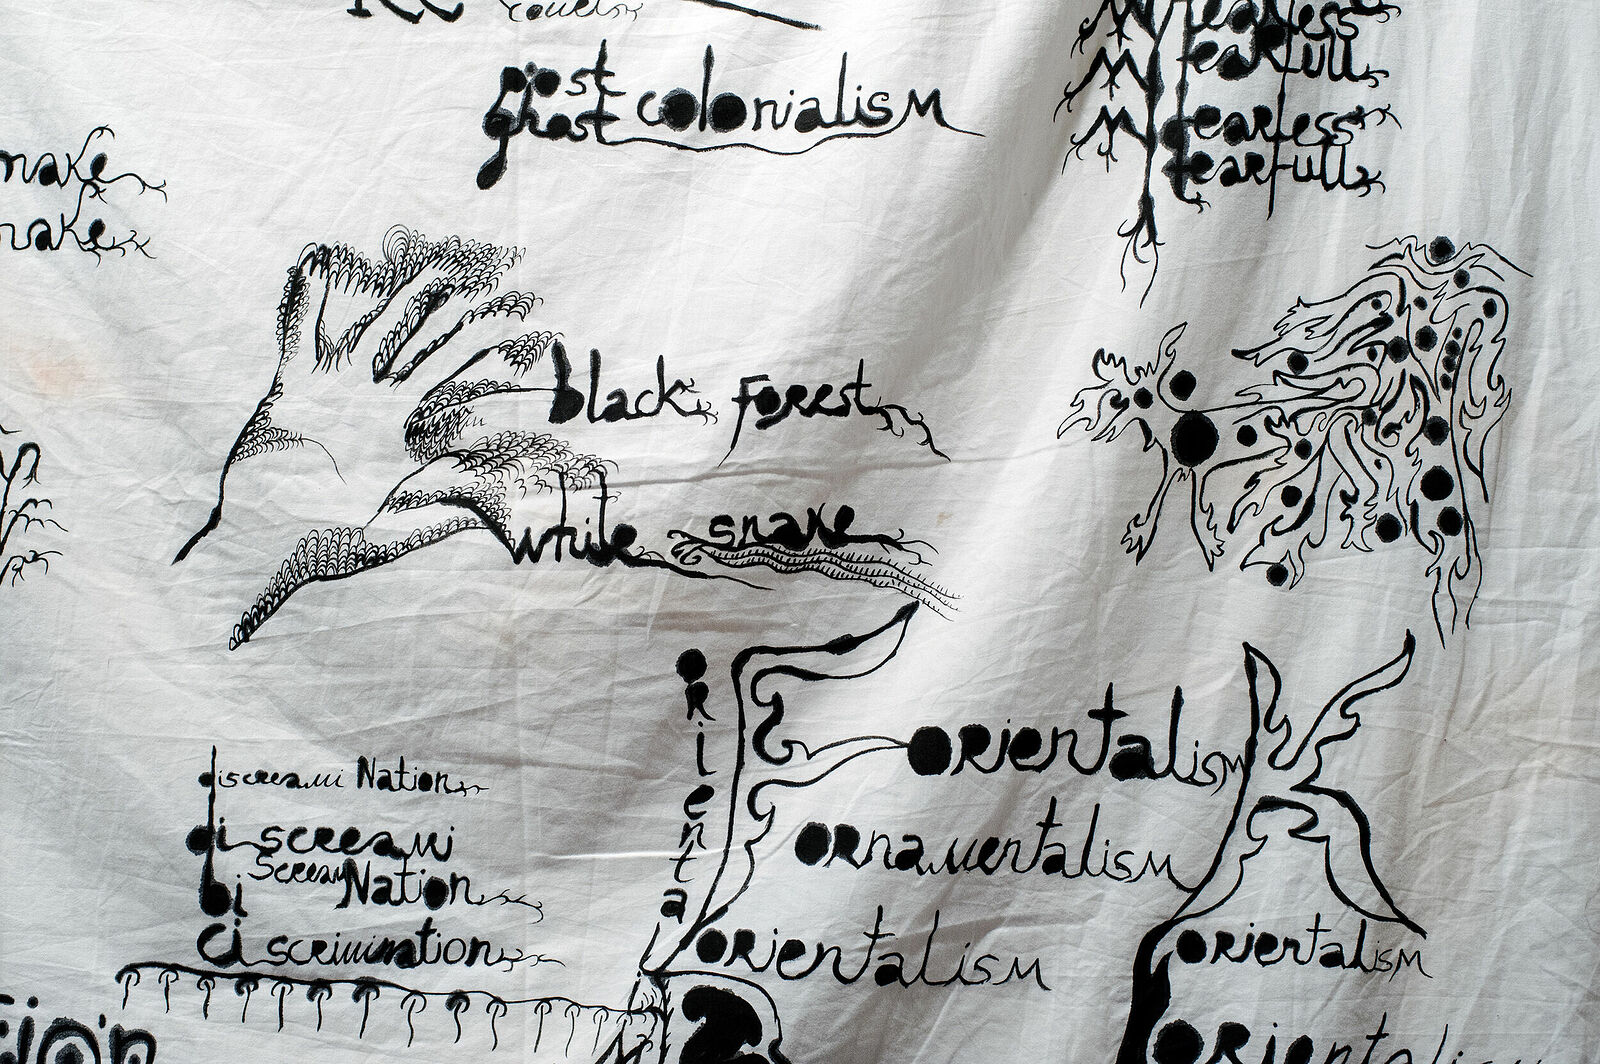 post
ghost colonialism
fearless
fearfull
fearless
fearfull
make
make
black forest
white snake
oriental
orientalism
ornamentalism
orientalism
orientalism
orientalism
discreami Nation
di screami
bi scream Nation
ci scrimination